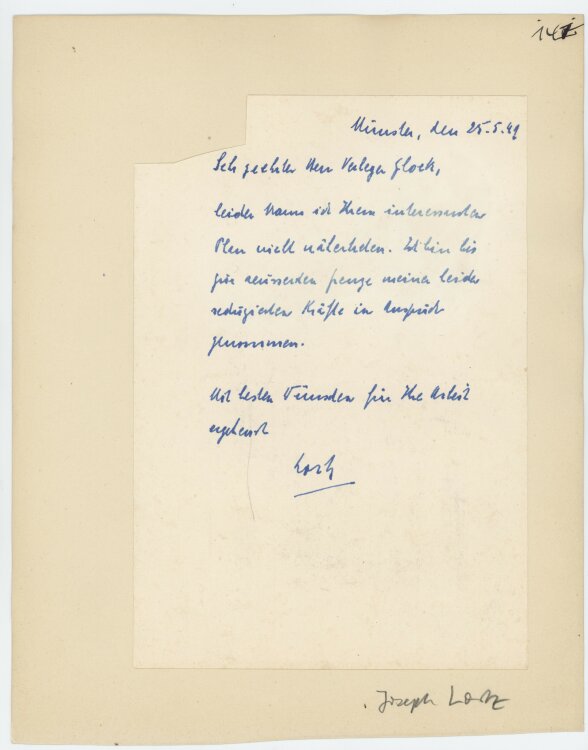 141
Münster, den 25.5.49
Sehr geehrter Herr Verleger Glock,
leider kann ich Ihrem interessanten
Plan nicht nähertreten. Ich bin bis
zur aeussersten Grenze meiner leider
reduzierten Kräfte in Anspruch
genommen.
Mit besten Wünschen für Ihre Arbeit
ergebenst
Lortz
Joseph Lortz